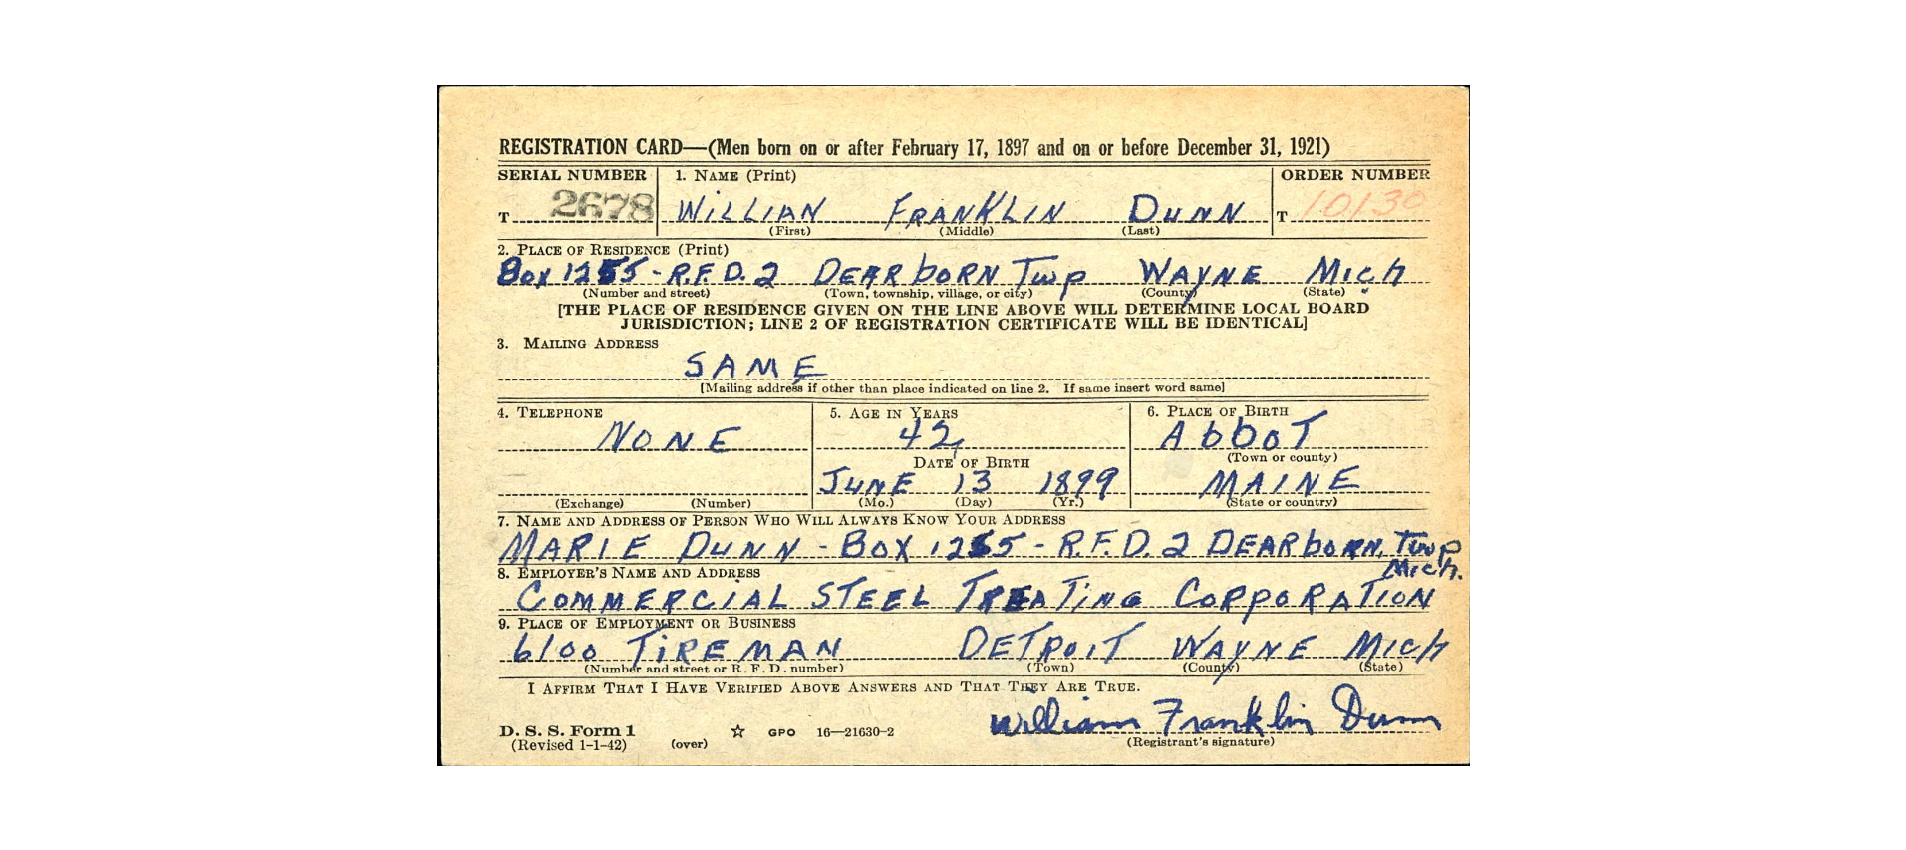 REGISTRATION CARD—(Men born on or after February 17, 1897 and on or before December 31, 1921)
SERIAL NUMBER 1. NAME (Print) ORDER NUMBER
T 2678 WILLIAN FRANKLIN DUNN T 10130
(First) (Middle) (Last)
2. PLACE OF RESIDENCE (Print)
Box 1255 - R.F.D. 2 DEARBORN Twp WAYNE Mich
(Number and street) (Town, township, village, or city) (County) (State)
[THE PLACE OF RESIDENCE GIVEN ON THE LINE ABOVE WILL DETERMINE LOCAL BOARD
JURISDICTION; LINE 2 OF REGISTRATION CERTIFICATE WILL BE IDENTICAL]
3. MAILING ADDRESS
SAME
[Mailing address if other than place indicated on line 2. If same insert word same]
4. TELEPHONE 5. AGE IN YEARS 6. PLACE OF BIRTH
NONE 42 AbboT
DATE OF BIRTH (Town or county)
JUNE 13 1899 MAINE
(Exchange) (Number) (Mo.) (Day) (Yr.) (State or country)
7. NAME AND ADDRESS OF PERSON WHO WILL ALWAYS KNOW YOUR ADDRESS
MARIE DUNN - BOX 1255 - R.F.D. 2 DEARBORN, Twp
Mich.
8. EMPLOYER'S NAME AND ADDRESS
COMMERCIAL STEEL TREATING CORPORATION
9. PLACE OF EMPLOYMENT OR BUSINESS
6100 TIREMAN DETROIT WAYNE Mich
(Number and street or R. F. D. number) (Town) (County) (State)
I AFFIRM THAT I HAVE VERIFIED ABOVE ANSWERS AND THAT THEY ARE TRUE.
William Franklin Dunn
D. S. S. Form 1 ☆ GPO 16—21630-2
(Revised 1-1-42) (over) (Registrant's signature)